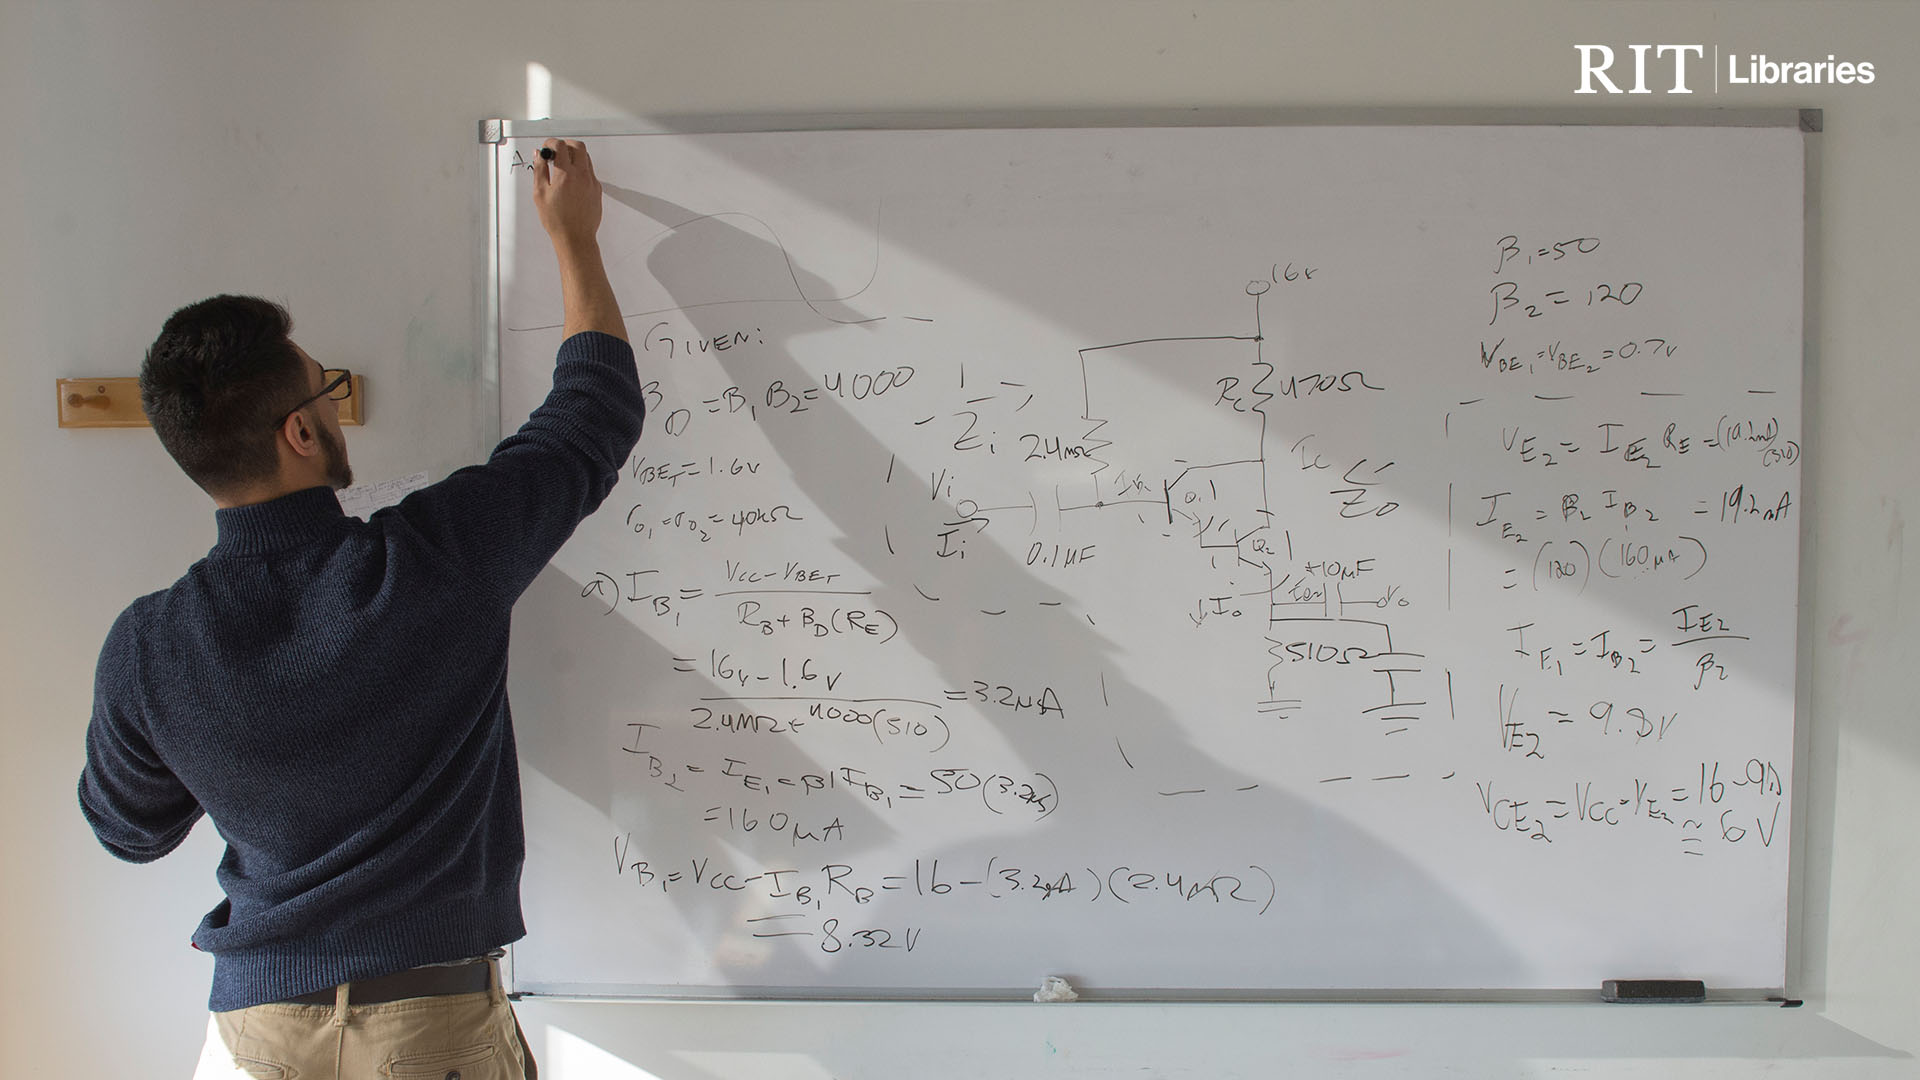 RIT | Libraries
GIVEN:
β_D = β₁ β₂ = 4000
V_BE_T = 1.6v
r_o₁ = r_o₂ = 40kΩ
a) I_B₁ = (Vcc - V_BE_T) / (R_B + β_D(R_E))
= (16v - 1.6v) / (2.4MΩ + 4000(510)) = 3.2μA
I_B₂ = I_E₁ = β₁I_B₁ = 50(3.2μA)
= 160μA
V_B₁ = Vcc - I_B₁R_B = 16 - (3.2μA)(2.4MΩ)
= 8.32V
16v
R_C 470Ω
Zi
2.4MΩ
Vi
Ii
0.1μF
Q1
Q2
Ic
Zo
10μF
Io
Vo
510Ω
β₁ = 50
β₂ = 120
V_BE₁ = V_BE₂ = 0.7v
V_E₂ = I_E₂ R_E = (19.2mA)(510)
I_E₂ = β₂ I_B₂ = 19.2mA
= (120)(160μA)
I_E₁ = I_B₂ = I_E₂ / β₂
V_E₂ = 9.8V
V_CE₂ = Vcc - V_E₂ = 16 - 9.8
≅ 6V